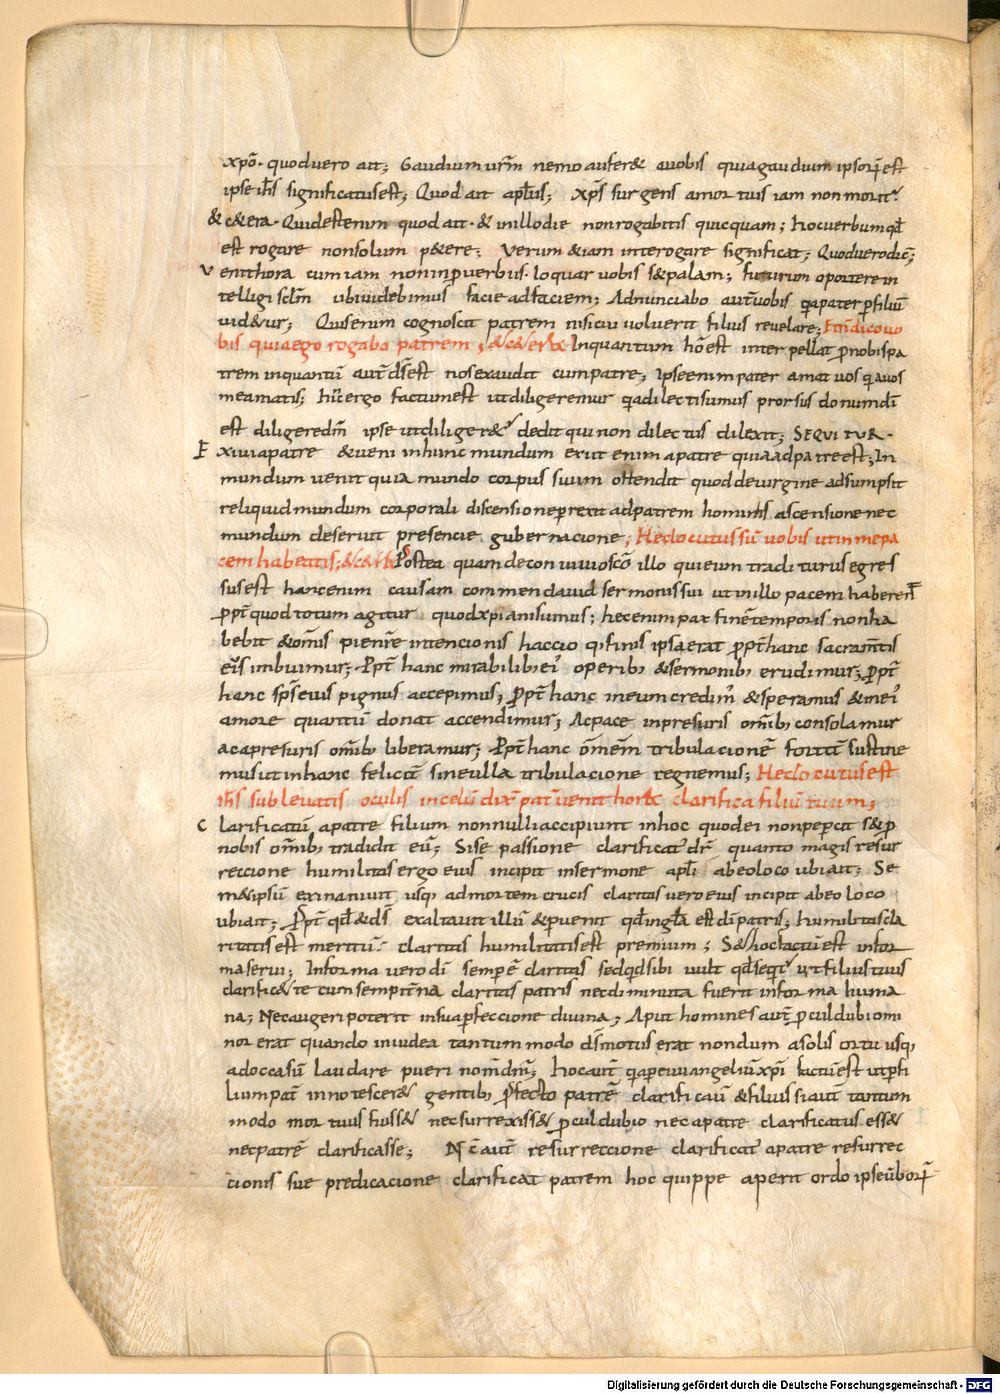 xpō· quoduero ait; Gaudium ur̄m nemo aufer& auobis quiagaudium ipsoꝝ est
ipse ih̄s significatusest; Quod ait apl̄us; xp̄s surgens amortuis iam nonmorit᷑
&c&era· Quidestenim quod ait· &inillodie nonrogabitis quicquam; hocuerbum qđ
est rogare nonsolum p&ere; Verum &iam interrogare significat; Quoduerodic̄;
Venithora cumiam noninꝓuerbiis· loquar uobis s&palam; futurum oportere in
telligi sclm̄ ubiuidebimus facie adfaciem; Adnunciabo aut̄uobis q̄apater ꝑfiliū
uid&ur; Quisenim cognoscit patrem nisicui uoluerit filius reuelare; Etn̄dicouo
bis quiaego rogabo patrem; &c& Inquantum hōest interpellat ꝓnobispa
trem inquantū aut̄ds̄est nosexaudit cumpatre; Ipseenimpater amat uos q̄auos
meamatis; hīcergo factumest utdiligeremur q̄adilectisumus prorsus donumdī
est diligeredm̄ ipse utdiliger&᷑ dedit quinon dilectus dilexit; SEQUITUR·
Exiuiapatre &ueni inhunc mundum exiit enim apatre quiaadpatreest; In
mundum uenit quia mundo corpus suum ostendit quoddeuirgine adsumpsit
reliquidmundum corporali discensione ꝑrexit adpatrem hominis ascensione nec
mundum deseruit presencie gubernacione; Heclocutussū uobis utin mepa
cem habeatis; &c& Postea quamdeconuiuioscō illo quieum traditurus egres
susest hancenim causam commendauid sermonissui utinillo pacem haberen̄t
ꝓpt̄quod totum agitur quodxpianisumus; hecenim pax finē temporis nonha
bebit &om̄is pien̄re intencionis haccio qͥfinis ipsaerat ꝓpt̄hanc sacramt̄is
eīs imbuimur; Ꝓpt̄ hanc mirabilibꝫeiꝰ operibꝫ &sermonibꝫ erudimur; ꝓpt̄
hanc sps̄eius pignus accepimus; Ꝓpt̄ hanc ineumcredimꝰ &speramus &ineiꝰ
amore quantū donat accendimur; Acpace inpresuris om̄ibꝫ consolamur
acapresuris om̄ibꝫ liberamur; Ꝓpt̄hanc om̄em tribulacionē fortit̄ sustine
musutinhanc felicit̄ sineulla tribulacione regnemus; Heclocutusest
ih̄s subleuatis oculis incelū dix̄ pat̄ uenit hor& clarifica filiū tuum;
Clarificatū apatre filium nonnulliaccipiunt inhoc quodei nonpepercit s&ꝓ
nobis om̄ibꝫ tradidit eū; Sise passione clarificat᷑ dr̄ quanto magis resur
reccione humilitasergo eius incipit insermone apl̄i abeoloco ubiait; Se
m&ipsū exinaniuit usqꝫ admortem crucis claritas uero eius incipit abeo loco
ubiait; Ꝓpt̄ qđ&ds̄ exaltauit illū &ꝑuenit qđingl̄a est dī patris; humilitascla
ritatisest meritū· claritas humilitatisest premium; S&hocfactūest infor
maserui; Informa uero dī semp ē claritas sedqđsibi uult qđseqit᷑ utfiliustuus
clarific&te cumsempit̄na claritas patris necdiminuta fuerit informa huma
na; Necaugeri poterit insuaꝑfeccione diuina; Aput homines aut̄ ꝓculdubiomi
nor erat quando iniudea tantummodo ds̄notus erat nondum asolis ortu usqꝫ
adoccasū laudare pueri nom̄dn̄i; hocaut̄ q̄aꝑeuuangeliūxpī factūest utꝑfi
liumpat̄ innotescer& gentibꝫ ꝓfecto patrē clarificauit &filius siaut̄ tantum
modo mortuus fuiss& necsurrexiss& ꝓculdubio necapatre clarificatus ess&
necpatrē clarificasse; Nc̄ aut̄ resurreccione clarificat᷑ apatre resurrec
cionis sue predicacione clarificat patrem hoc quippe aperit ordo ipseūborꝝ
Digitalisierung gefördert durch die Deutsche Forschungsgemeinschaft - DFG